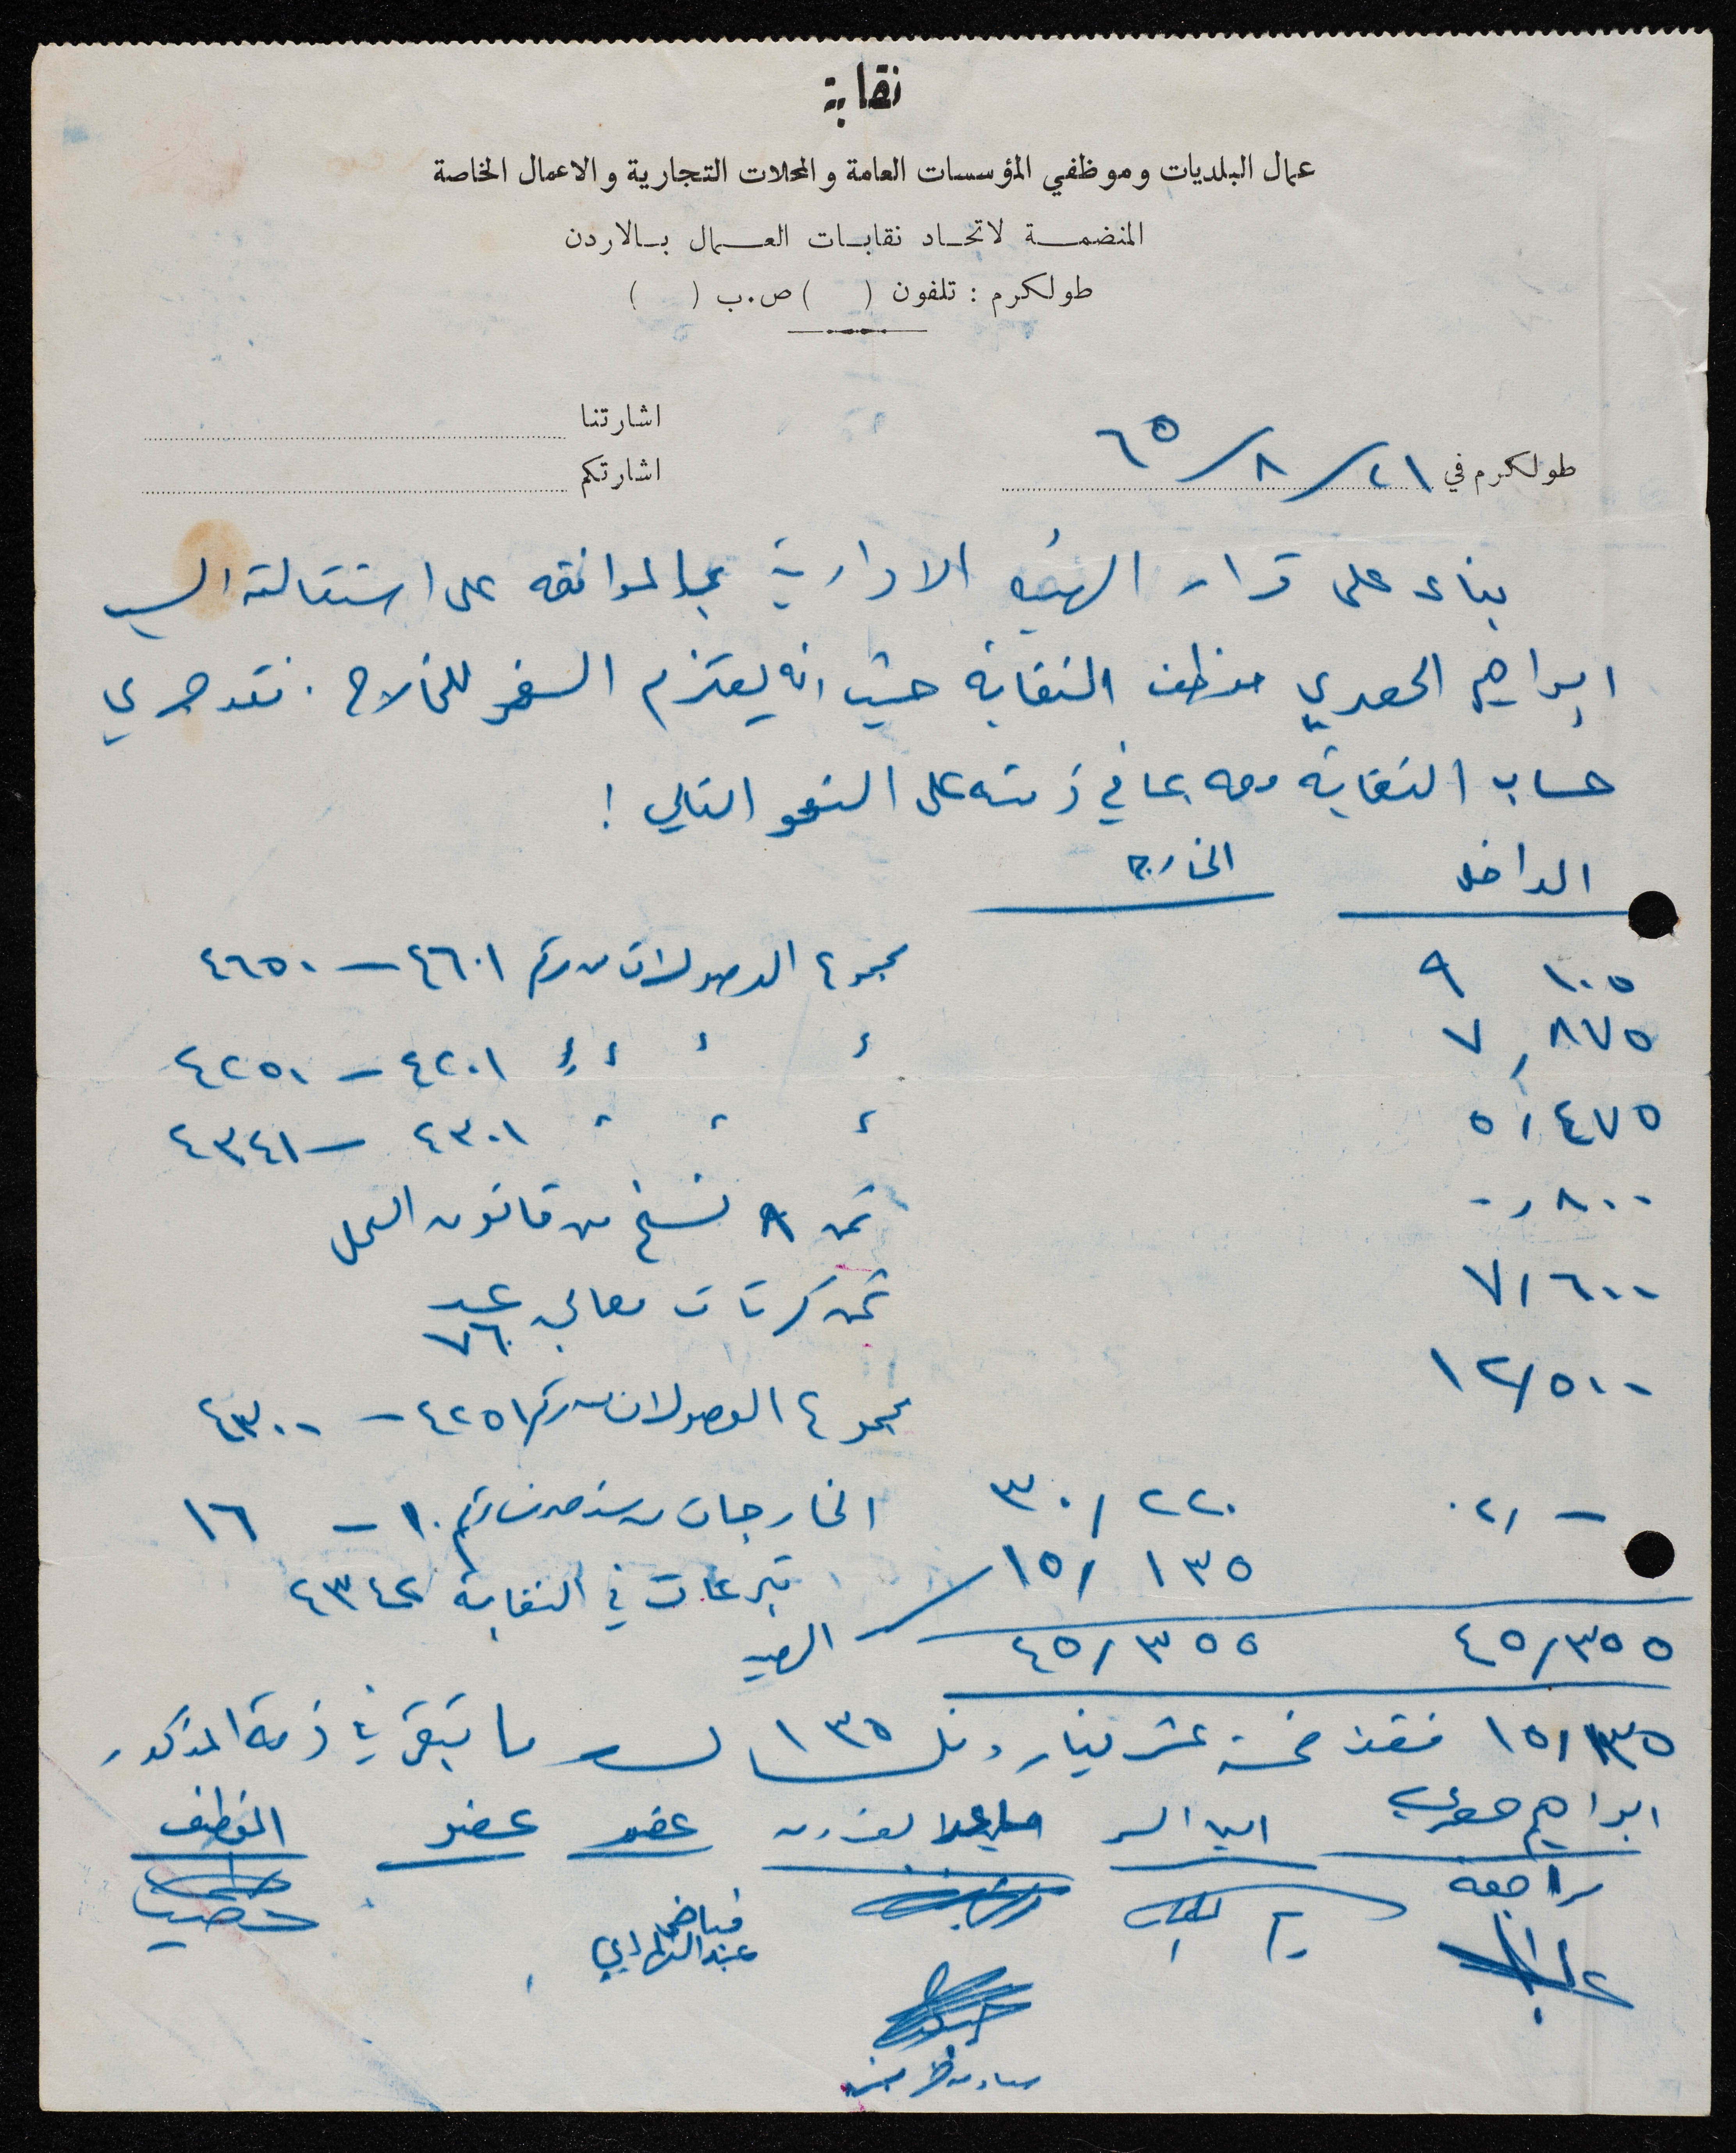 نقابة
عمال البلديات وموظفي المؤسسات العامة والمحلات التجارية والاعمال الخاصة
المنضمة لاتحاد نقابات العمال بالاردن
طولكرم : تلفون ( ) ص.ب ( )
اشارتنا
طولكرم في ٢١/٨/٦٥
اشارتكم
بناء على قرار الهيئه الادارية بالموافقه على استقالة السيد
ابراهيم الصعدي موظف النقابة حيث انه يعتزم السفر للخارج . فقد جرى
حساب النقابة معه بما في ذمته على النحو التالي !
الداخل الخارج
٩ ١٠٥ مجموع الوصولات من رقم ٤٦٠١ – ٤٦٥٠
٧,٨٧٥ ٤٢٠١ – ٤٢٥٠
٥,٤٧٥ ٤٣٠١ – ٤٣٤١
٠,٨٠٠ ثمن ٨ نسخ من قانون العمل
٧,٦٠٠ ثمن كرتات عدد ٧٦
١٢,٥٠٠ مجموع الوصولات من رقم ٤٢٥١ – ٤٣٠٠
٠٢,– ٣٠,٢٢٠ الخارجات من سند صرف رقم ١٠ – ١٦
١٥,١٣٥ تبرعات في النقابة ٤٣٤٢
٤٥,٣٥٥ ٤٥,٣٥٥ الرصيد
١٥,١٣٥ فقط خمسة عشر دينار و ١٣٥ فلس ما تبقى في ذمة المذكور
ابراهيم صعدي امين السر عضو عضو الموظف
مراجعه
فياض